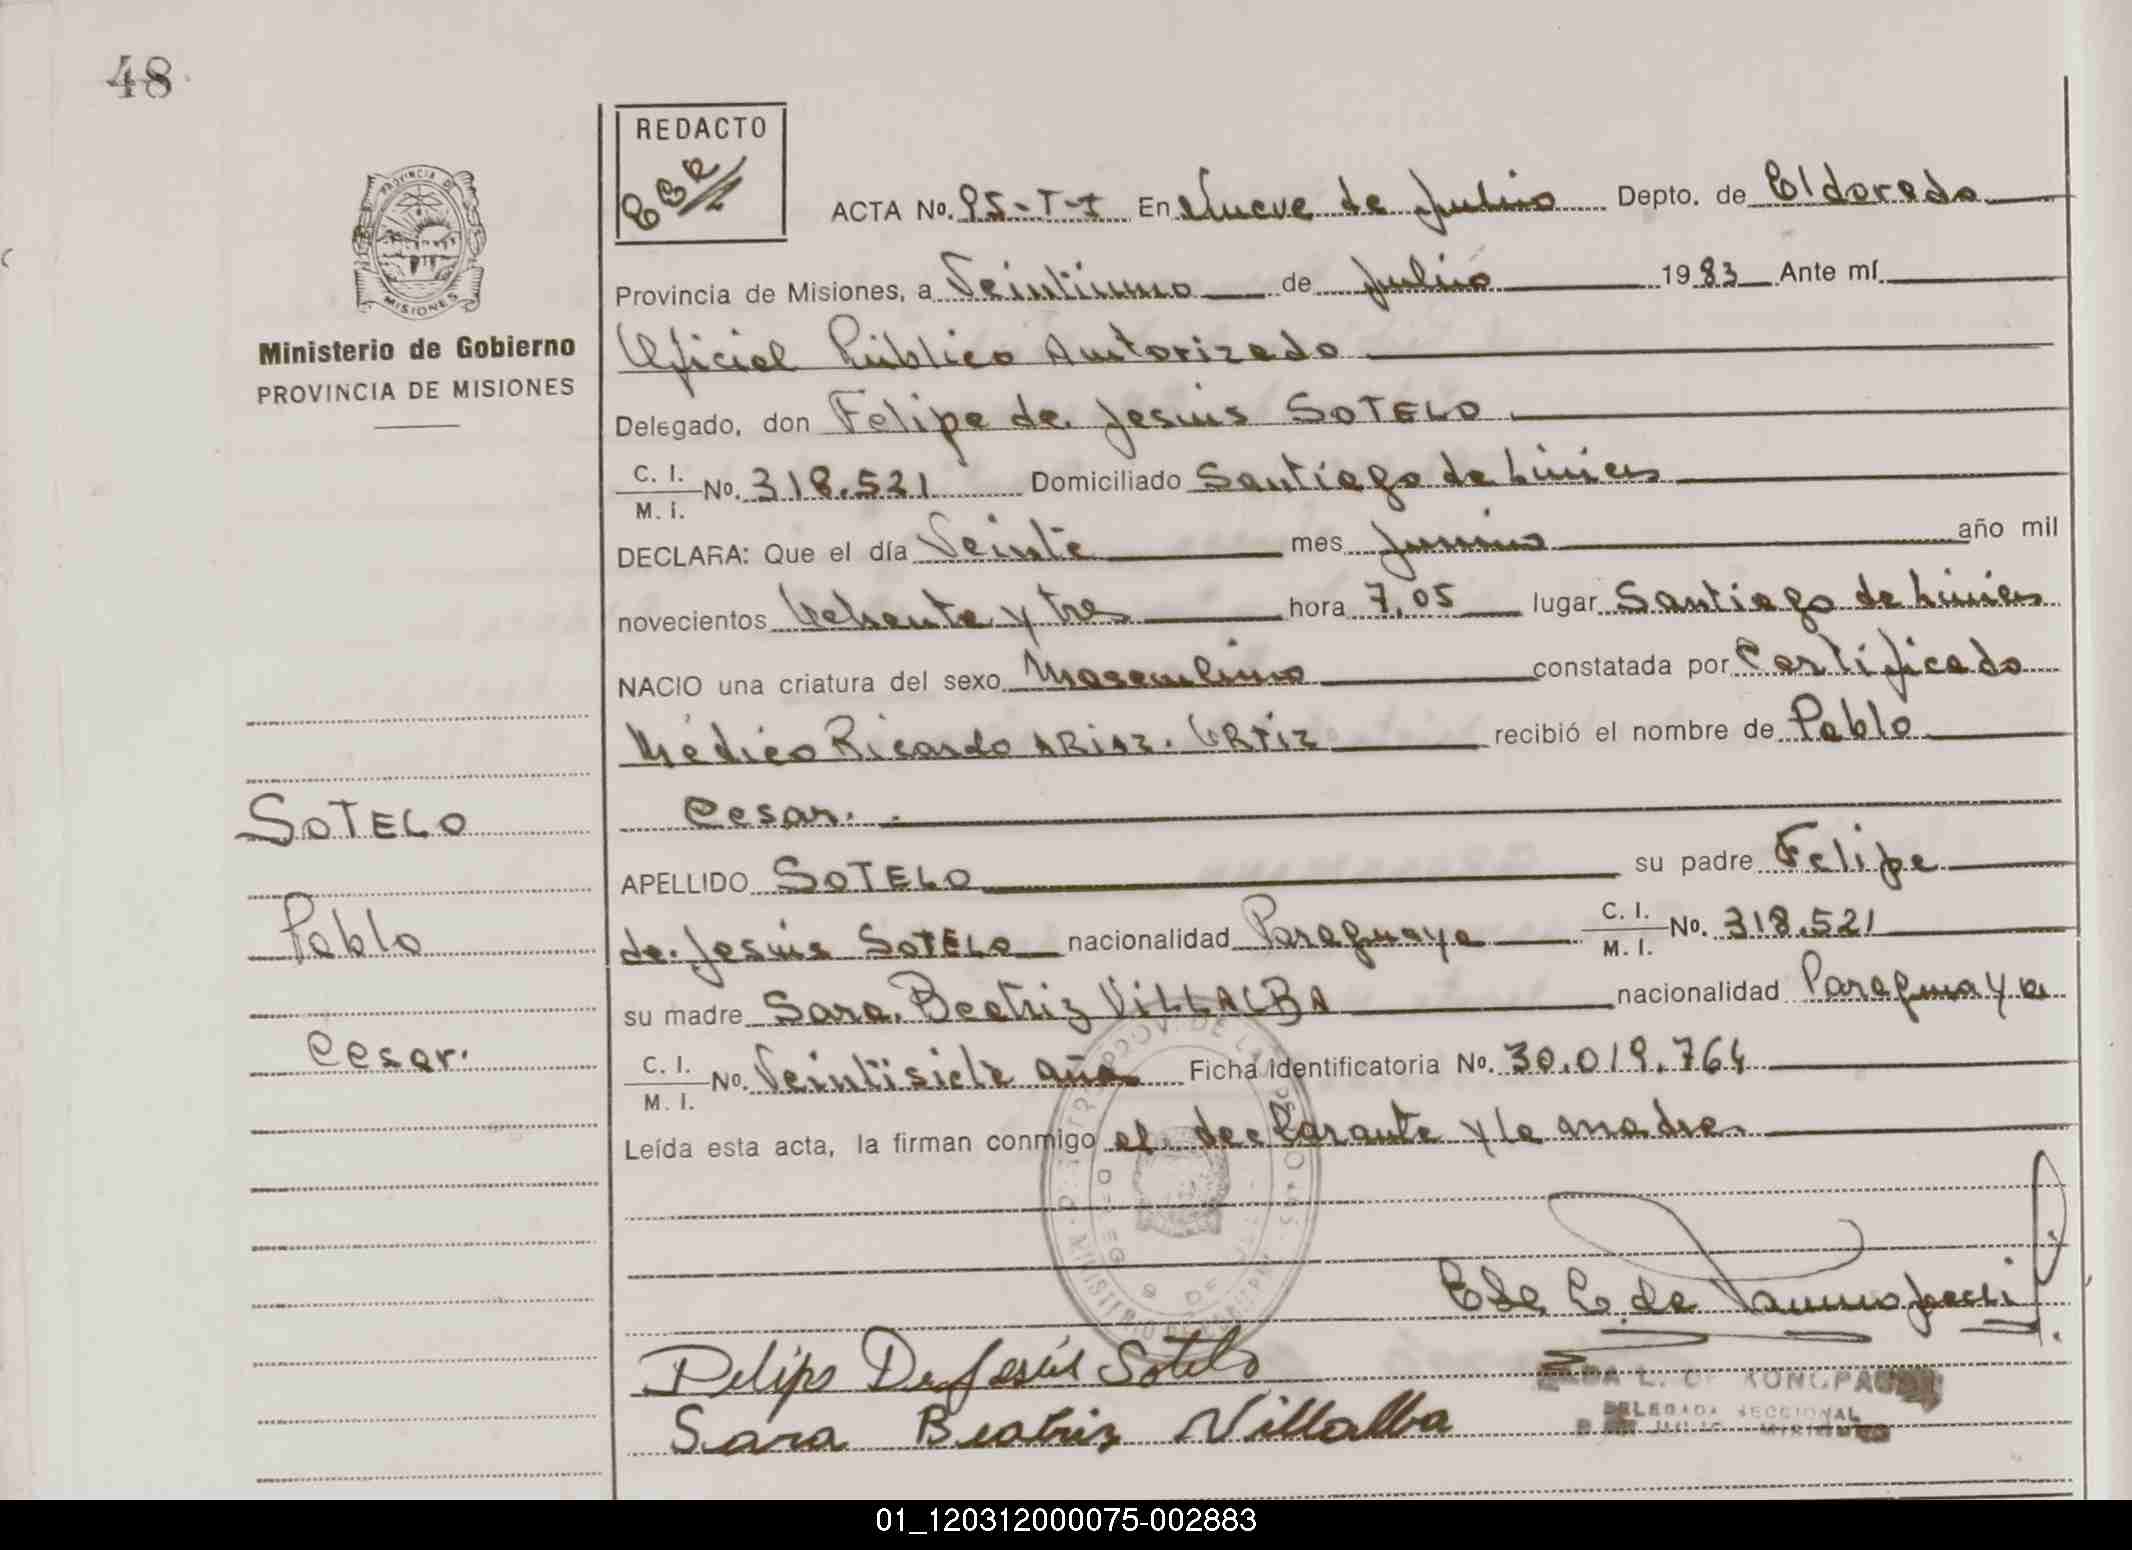 48
REDACTO
PROVINCIA DE
MISIONES
Ministerio de Gobierno
PROVINCIA DE MISIONES
ACTA No. 95-T-I En Nueve de Julio Depto. de Eldorado
Provincia de Misiones, a Veintiuno de Julio 1983 Ante mí
Oficial Público Autorizado
Delegado, don Felipe de Jesús SOTELO
C. I. M. I. No. 318.521 Domiciliado Santiago de Liniers
DECLARA: Que el día Veinte mes Junio año mil
novecientos Ochenta y tres hora 7,05 lugar Santiago de Liniers
NACIO una criatura del sexo Masculino constatada por Certificado
Médico Ricardo ORTIZ recibió el nombre de Pablo
Cesar.
APELLIDO SOTELO su padre Felipe
de Jesús SOTELO nacionalidad Paraguaya C. I. M. I. No. 318.521
su madre Sara Beatriz VILLALBA nacionalidad Paraguaya
C. I. M. I. No. Veintisiete años Ficha identificatoria No. 30.019.764
Leída esta acta, la firman conmigo el declarante y la madre.
SOTELO
Pablo
Cesar.
Felipe De Jesús Sotelo
Sara Beatriz Villalba
DELEGADA SECCIONAL
JULIO MISIONES
01_120312000075-002883